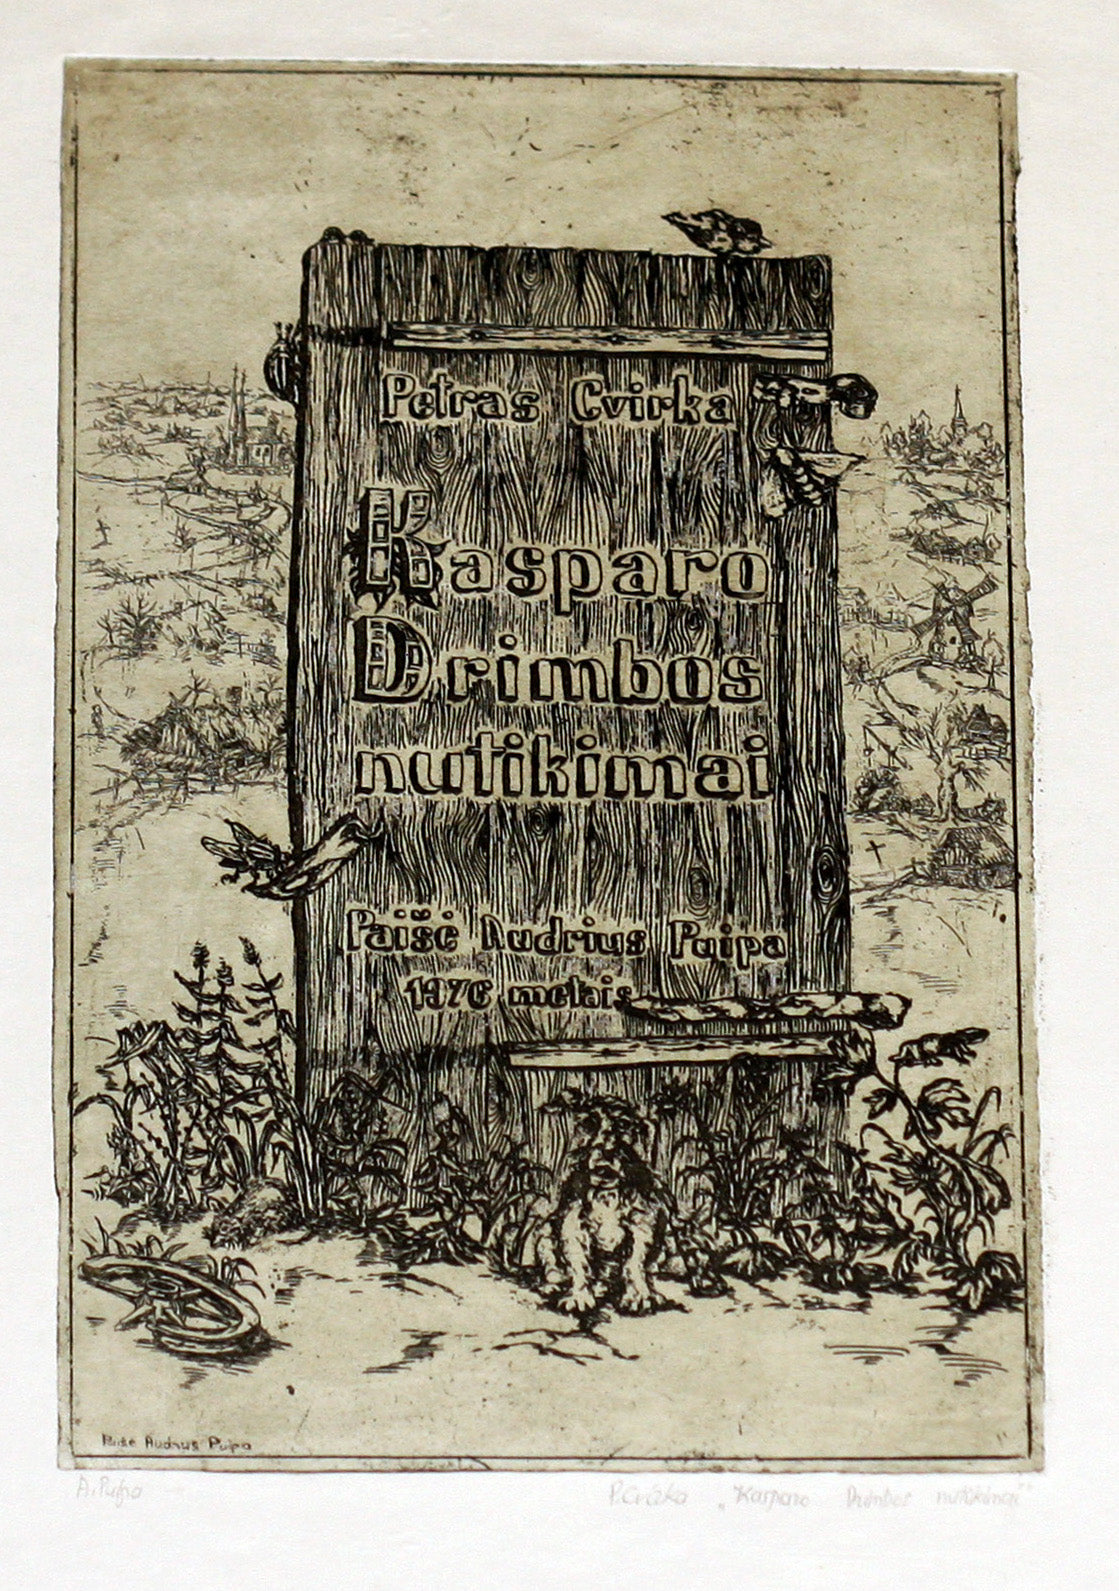 Petras Cvirka
Kasparo
Drimbos
nutikimai
Paišė Audrius Puipa
1976 metais
Paišė Audrius Puipa
A. Puipa
P. Cvirka „Kasparo Drimbos nutikimai"